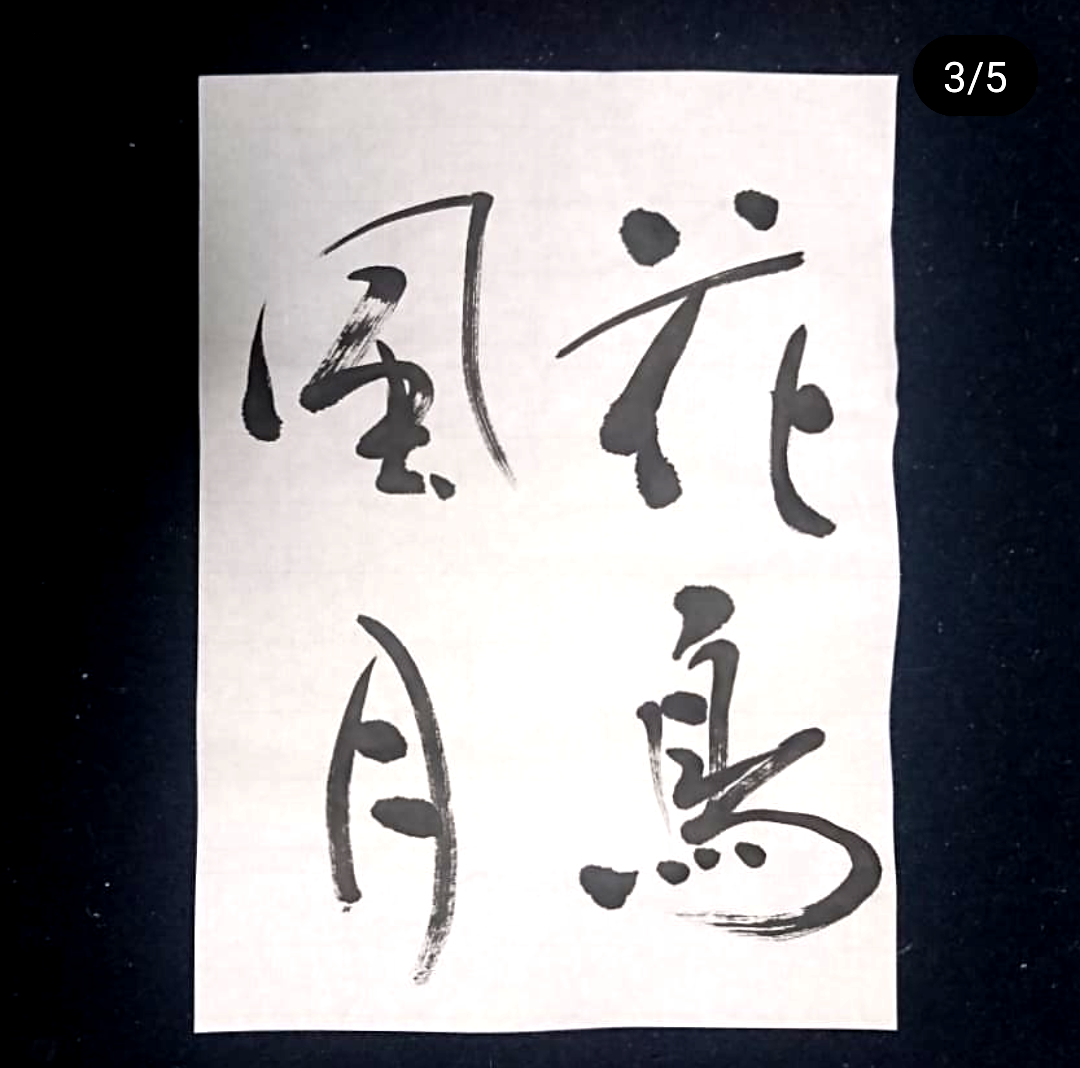 花鳥
風月
3/5